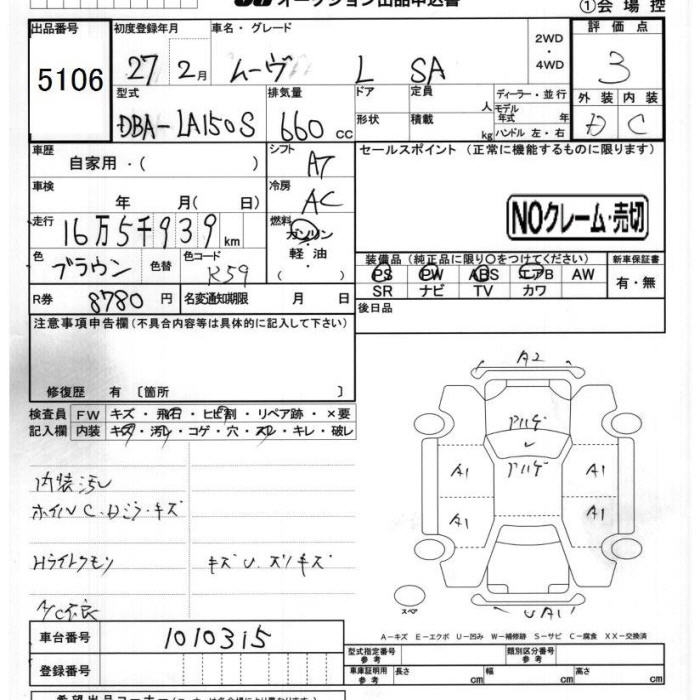 オークション出品申込書
①会場控
出品番号
5106
初度登録年月
27 2月
車名・グレード
ムーヴ L SA
2WD
・
4WD
評価点
3
外装 内装
D C
型式
DBA-LA150S
排気量
660 cc
ドア
形状
定員 人
積載 kg
ディーラー・並行
モデル年式 年
ハンドル 左・右
車歴
自家用・( )
シフト
AT
セールスポイント (正常に機能するものに限ります)
車検
年 月( 日)
冷房
AC
NOクレーム・売切
走行
16万5千939km
燃料
ガソリン
・
軽油
( )
色
ブラウン
色替
色コード
R59
装備品 (純正品に限り○をつけてください)
PS PW ABS エアB AW
SR ナビ TV カワ
新車保証書
有・無
R券 8780円
名変通知期限 月 日
後日品
注意事項申告欄 (不具合内容等は具体的に記入して下さい)
修復歴 有 〔箇所 〕
検査員記入欄
FW キズ・飛石・ヒビ割・リペア跡・×要
内装 キズ・汚レ・コゲ・穴・スレ・キレ・破レ
内装汚レ
ホイルC・Dミラ・キズ
Hライトクモリ
キズU.ズリキズ
A/C不良
A2
アハゲ
アハゲ
A1
A1
A1
A1
UA1
スペア
A−キズ E−エクボ U−凹み W−補修跡 S−サビ C−腐食 XX−交換済
車台番号
1010315
登録番号
型式指定番号
参考
類別区分番号
参考
車庫証明用
参考
長さ cm 幅 cm 高さ cm